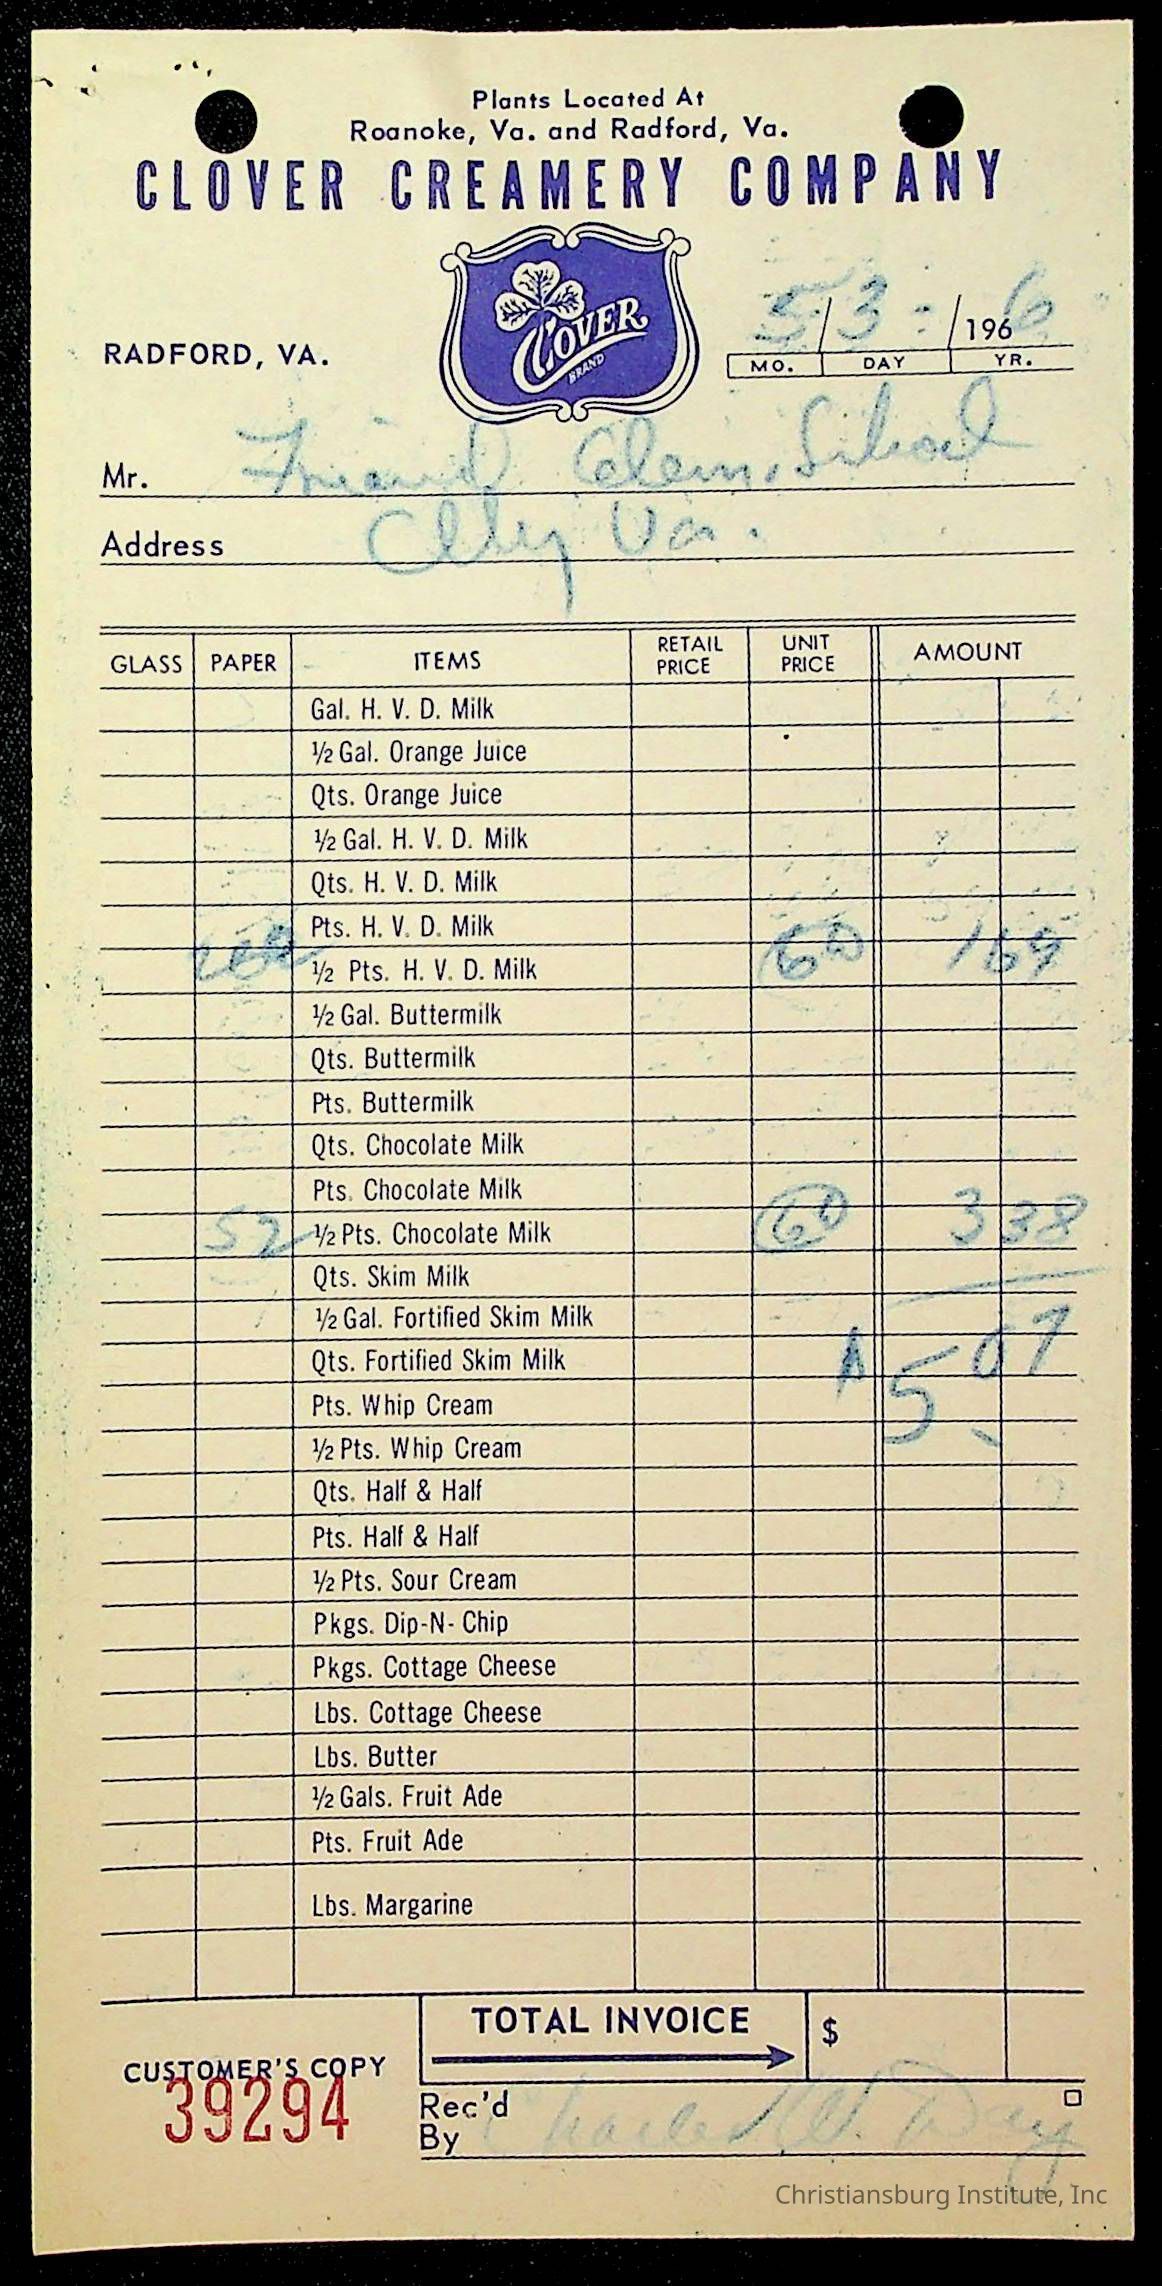 Plants Located At
Roanoke, Va. and Radford, Va.
CLOVER CREAMERY COMPANY
CLOVER
BRAND
5/3 - /1966
RADFORD, VA.
MO. DAY YR.
Mr. Friend Elem. School
Address Va.
GLASS PAPER ITEMS RETAIL PRICE UNIT PRICE AMOUNT
Gal. H. V. D. Milk
½ Gal. Orange Juice
Qts. Orange Juice
½ Gal. H. V. D. Milk
Qts. H. V. D. Milk
Pts. H. V. D. Milk
½ Pts. H. V. D. Milk 60 169
½ Gal. Buttermilk
Qts. Buttermilk
Pts. Buttermilk
Qts. Chocolate Milk
Pts. Chocolate Milk
52 ½ Pts. Chocolate Milk 60 3 38
Qts. Skim Milk
½ Gal. Fortified Skim Milk
Qts. Fortified Skim Milk 5 07
Pts. Whip Cream
½ Pts. Whip Cream
Qts. Half & Half
Pts. Half & Half
½ Pts. Sour Cream
Pkgs. Dip-N-Chip
Pkgs. Cottage Cheese
Lbs. Cottage Cheese
Lbs. Butter
½ Gals. Fruit Ade
Pts. Fruit Ade
Lbs. Margarine
TOTAL INVOICE $
CUSTOMER'S COPY
39294
Rec'd By Charles W. Day
Christiansburg Institute, Inc